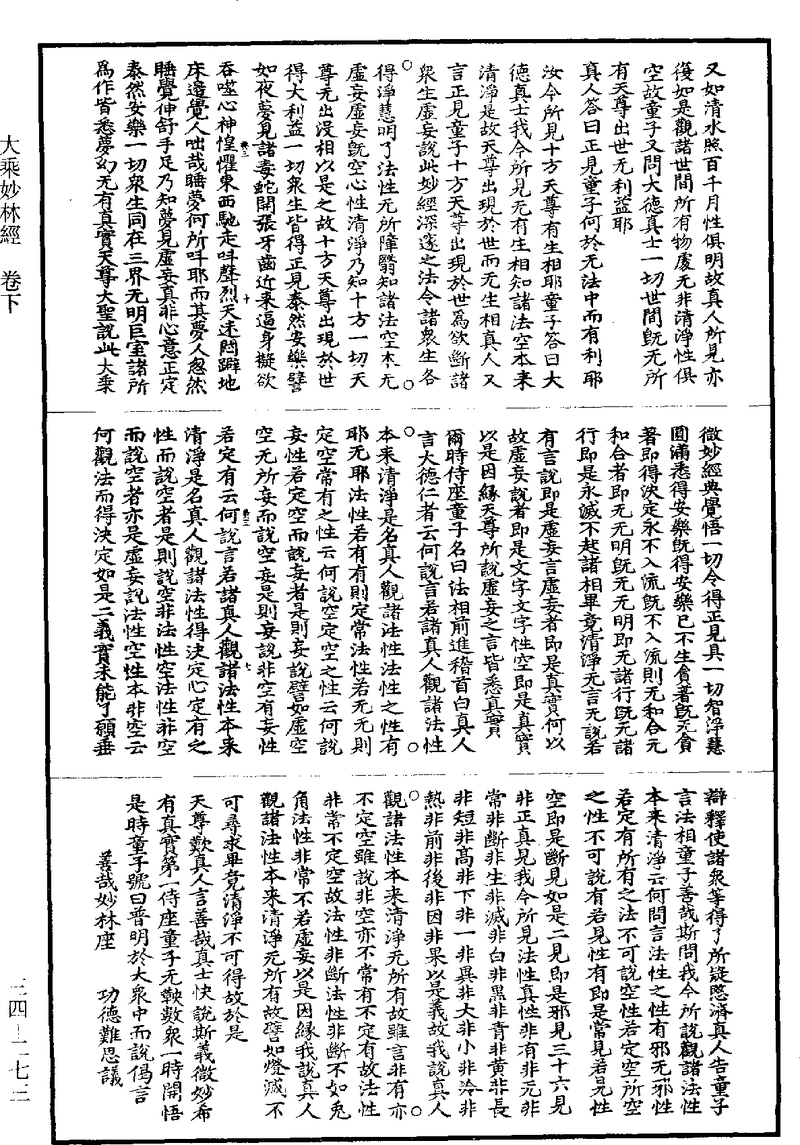 又如清水照百千月性俱明故真人所見亦
復如是觀諸世間所有物處无非清淨性俱
空故童子又問大德真士一切世間既无所
有天尊出世无利益耶
真人答曰正見童子何於无法中而有利耶
汝今所見十方天尊有生相耶童子答曰大
德真士我今所見无有生相知諸法空本来
清淨是故天尊出現於世而无生相真人又
言正見童子十方天尊出現於世為欲斷諸
衆生虛妄說此妙經深邃之法令諸衆生各
得淨慧明了法性无所障翳知諸法空本无
虛妄虛妄既空心性清淨乃知十方一切天
尊无出沒相以是之故十方天尊出現於世
得大利益一切衆生皆得正見泰然安樂譬
如夜夢見諸毒蛇開張牙齒近来逼身擬欲
吞噬心神惶懼東西馳走叫聲烈天迷悶躃地
床邊覺人咄哉睡夢何所叫耶而其夢人忽然
睡覺伸舒手足乃知夢見虛妄真非心意正定
泰然安樂一切衆生同在三界无明巨室諸所
為作皆悉夢幻无有真實天尊大聖說此大乘
微妙經典覺悟一切令得正見具一切智淨慧
圓滿悉得安樂既得安樂已不生貪著既无貪
著即得決定永不入流既不入流則无和合无
和合者即无无明既无无明即无諸行既无諸
行即是永滅不起諸相畢竟清淨无言无說若
有言說即是虛妄言虛妄者即是真實何以
故虛妄說者即是文字文字性空即是真實
以是因緣天尊所說虛妄之言皆悉真實
爾時侍座童子名曰法相前進稽首白真人
言大德仁者云何說言若諸真人觀諸法性
本来清淨是名真人觀諸法性法性之性有
耶无耶法性若有有則定常法性若无无則
定空常有之性云何說空定空之性云何說
妄性若定空而說妄者是則妄說譬如虛空
空无所妄而說空妄是則妄說非空有妄性
若定有云何說言若諸真人觀諸法性本来
清淨是名真人觀諸法性得決定心定有之
性而說空者是則說空非法性空法性非空
而說空者亦是虛妄說法性空性本非空云
何觀法而得決定如是二義實未能了願垂
辯釋使諸衆等得了所疑愍濟真人告童子
言法相童子善哉斯問我今所說觀諸法性
本来清淨云何問言法性之性有邪无邪性
若定有所有之法不可說空性若定空所空
之性不可說有若見性有即是常見若見性
空即是斷見如是二見即是邪見三十六見
非正真見我今所見法性真性非有非无非
常非斷非生非滅非白非黑非青非黃非長
非短非高非下非一非異非大非小非冷非
熱非前非後非因非果以是義故我說真人
觀諸法性本来清淨无所有故雖言非有亦
不定空雖說非空亦不常有不定有故法性
非常不定空故法性非斷法性非斷不如兎
角法性非常不若虛妄以是因緣我說真人
觀諸法性本来清淨无所有故譬如燈滅不
可尋求畢竟清淨不可得故於是
天尊歎真人言善哉真士快說斯義微妙希
有真實第一侍座童子无鞅數衆一時開悟
是時童子號曰普明於大衆中而說偈言
善哉妙林座　功德難思議
大乘妙林經　卷下
三四―二七三